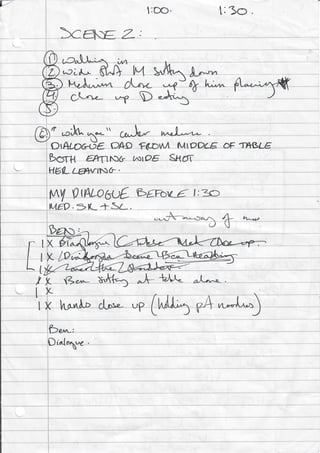 1:00. 1:30.
SCENE 2:
① walking in
② wide shot M sitting down
③ Medium close up of him placing
④ close up D eating
⑤
⑥ "with you" center medium.
DIALOGUE DAD FROM MIDDLE OF TABLE
BOTH EATING WIDE SHOT
HER LEAVING.
MY DIALOGUE BEFORE 1:30
MED. SR + SC.
cut away of
BEN:
1 X Dialogue Close up
1 X Scene Ben
1 X over the shoulder
1 X Ben sitting at table alone.
1 X
1 X hands close up (holding pot noodles)
Ben:
Dialogue.